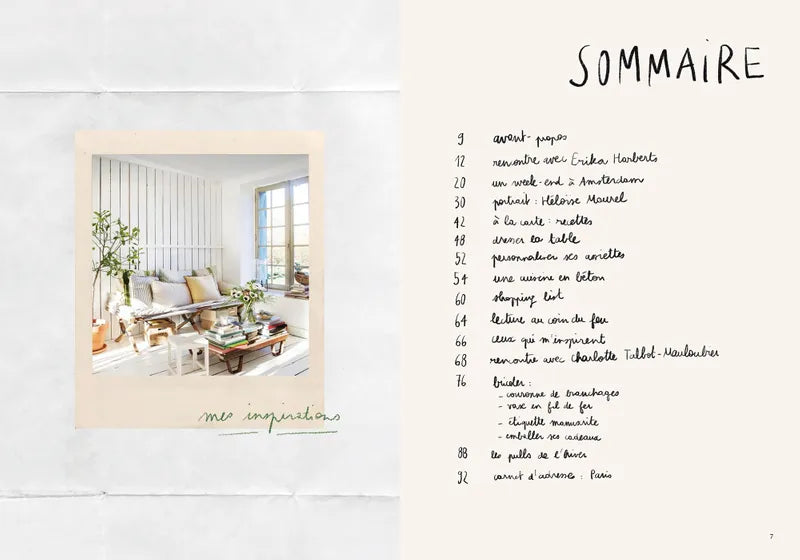 mes inspirations
SOMMAIRE
9 avant-propos
12 rencontre avec Erika Harberts
20 un week-end à Amsterdam
30 portrait : Héloïse Maurel
42 à la carte : recettes
48 dresser la table
52 personnaliser ses assiettes
54 une cuisine en béton
60 shopping list
64 lecture au coin du feu
66 ceux qui m'inspirent
68 rencontre avec Charlotte Talbot-Mauloubier
76 bricoler :
- couronne de branchages
- vase en fil de fer
- étiquette manuscrite
- emballer ses cadeaux
88 les pulls de l'hiver
92 carnet d'adresses : Paris
7